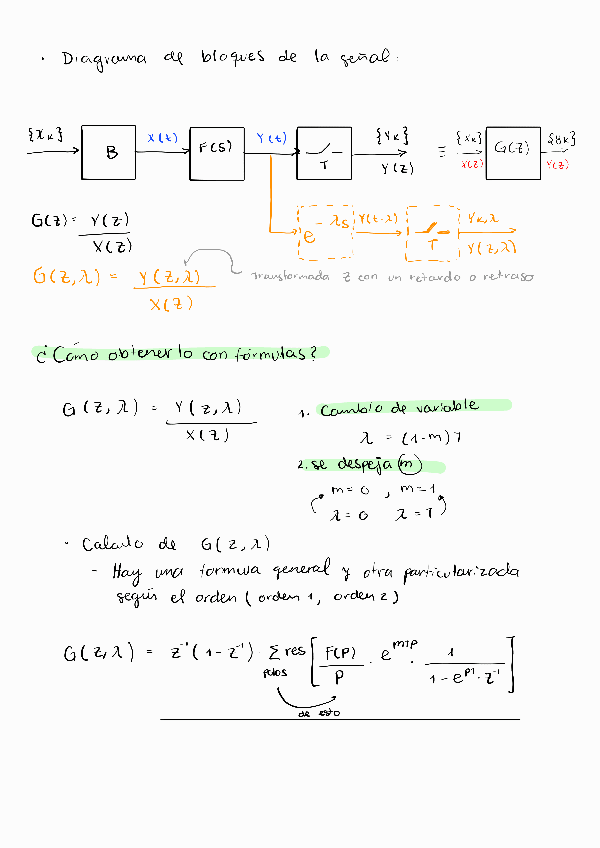 · Diagrama de bloques de la señal:
{Xk} B X(t) F(S) Y(t) T {Yk} Y(z) ≡ {Xk} X(z) G(z) {Yk} Y(z)
G(z) = Y(z) / X(z)
e^-λs Y(t-λ) T Yk,λ Y(z,λ)
G(z,λ) = Y(z,λ) / X(z) transformada z con un retardo o retraso
¿Cómo obtenerlo con fórmulas?
G(z,λ) = Y(z,λ) / X(z)
1. Cambio de variable
λ = (1-m)T
2. se despeja m
m=0 , m=1
λ=0 λ=T
· Calculo de G(z,λ)
- Hay una formula general y otra particularizada
según el orden (orden 1, orden 2)
G(z,λ) = z^-1 (1 - z^-1) · Σ res [ F(P) / P · e^mTP · 1 / 1 - e^PT · z^-1 ]
polos
de esto